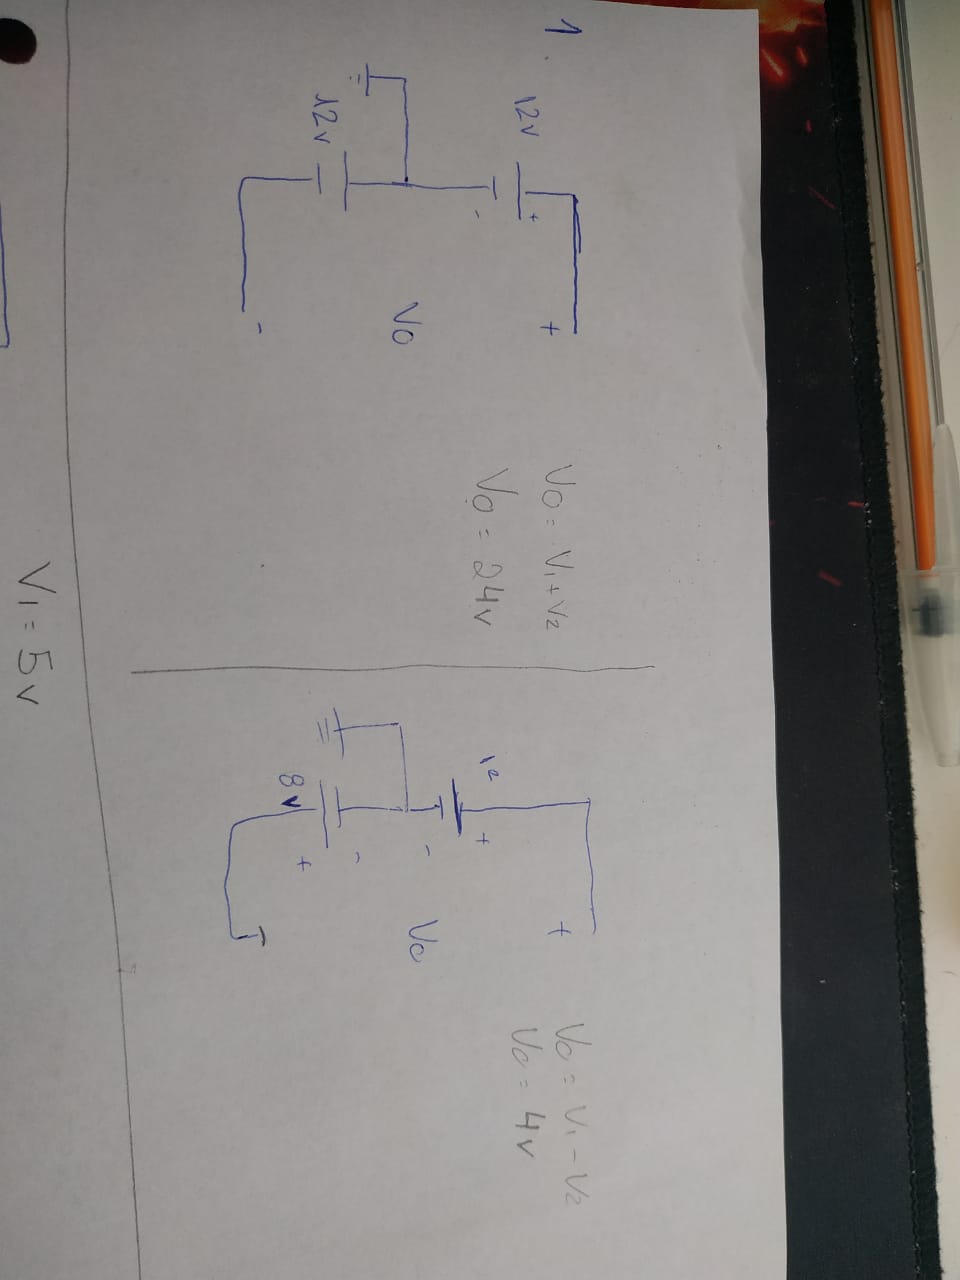 1.
12v
+
-
12v
+
-
V0
V0 = V1 + V2
V0 = 24v
12
+
-
8v
-
+
+
V0
V0 = V1 - V2
V0 = 4v
V1 = 5v